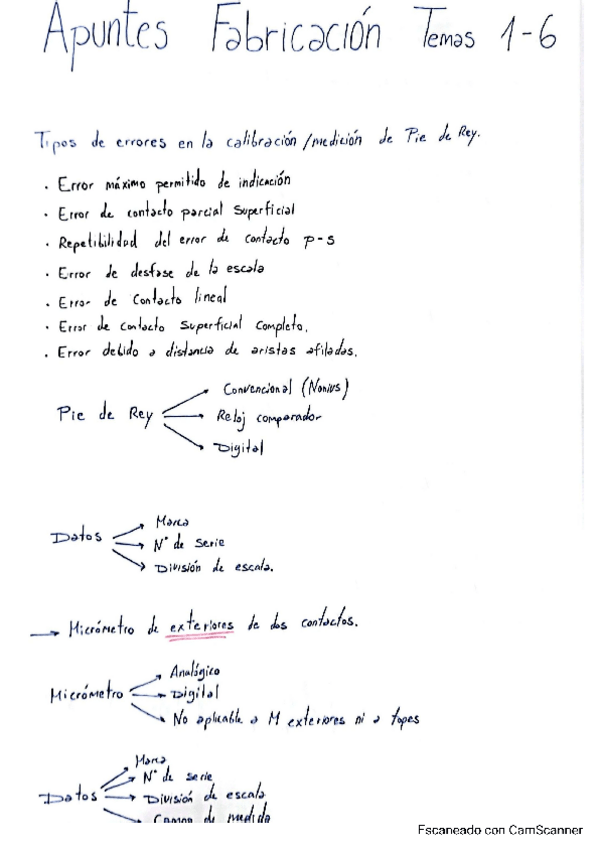 Apuntes Fabricación Temas 1-6
Tipos de errores en la calibración/medición de Pie de Rey.
· Error máximo permitido de indicación
· Error de contacto parcial superficial
· Repetibilidad del error de contacto p-s
· Error de desfase de la escala
· Error de contacto lineal
· Error de contacto superficial completo.
· Error debido a distancia de aristas afiladas.
Convencional (Nonius)
Pie de Rey → Reloj comparador
Digital
Marca
Datos → N° de serie
División de escala.
→ Micrómetro de exteriores de dos contactos.
Analógico
Micrómetro → Digital
No aplicable a M exteriores ni a topes
Marca
N° de serie
Datos → División de escala
Campo de medida
Escaneado con CamScanner